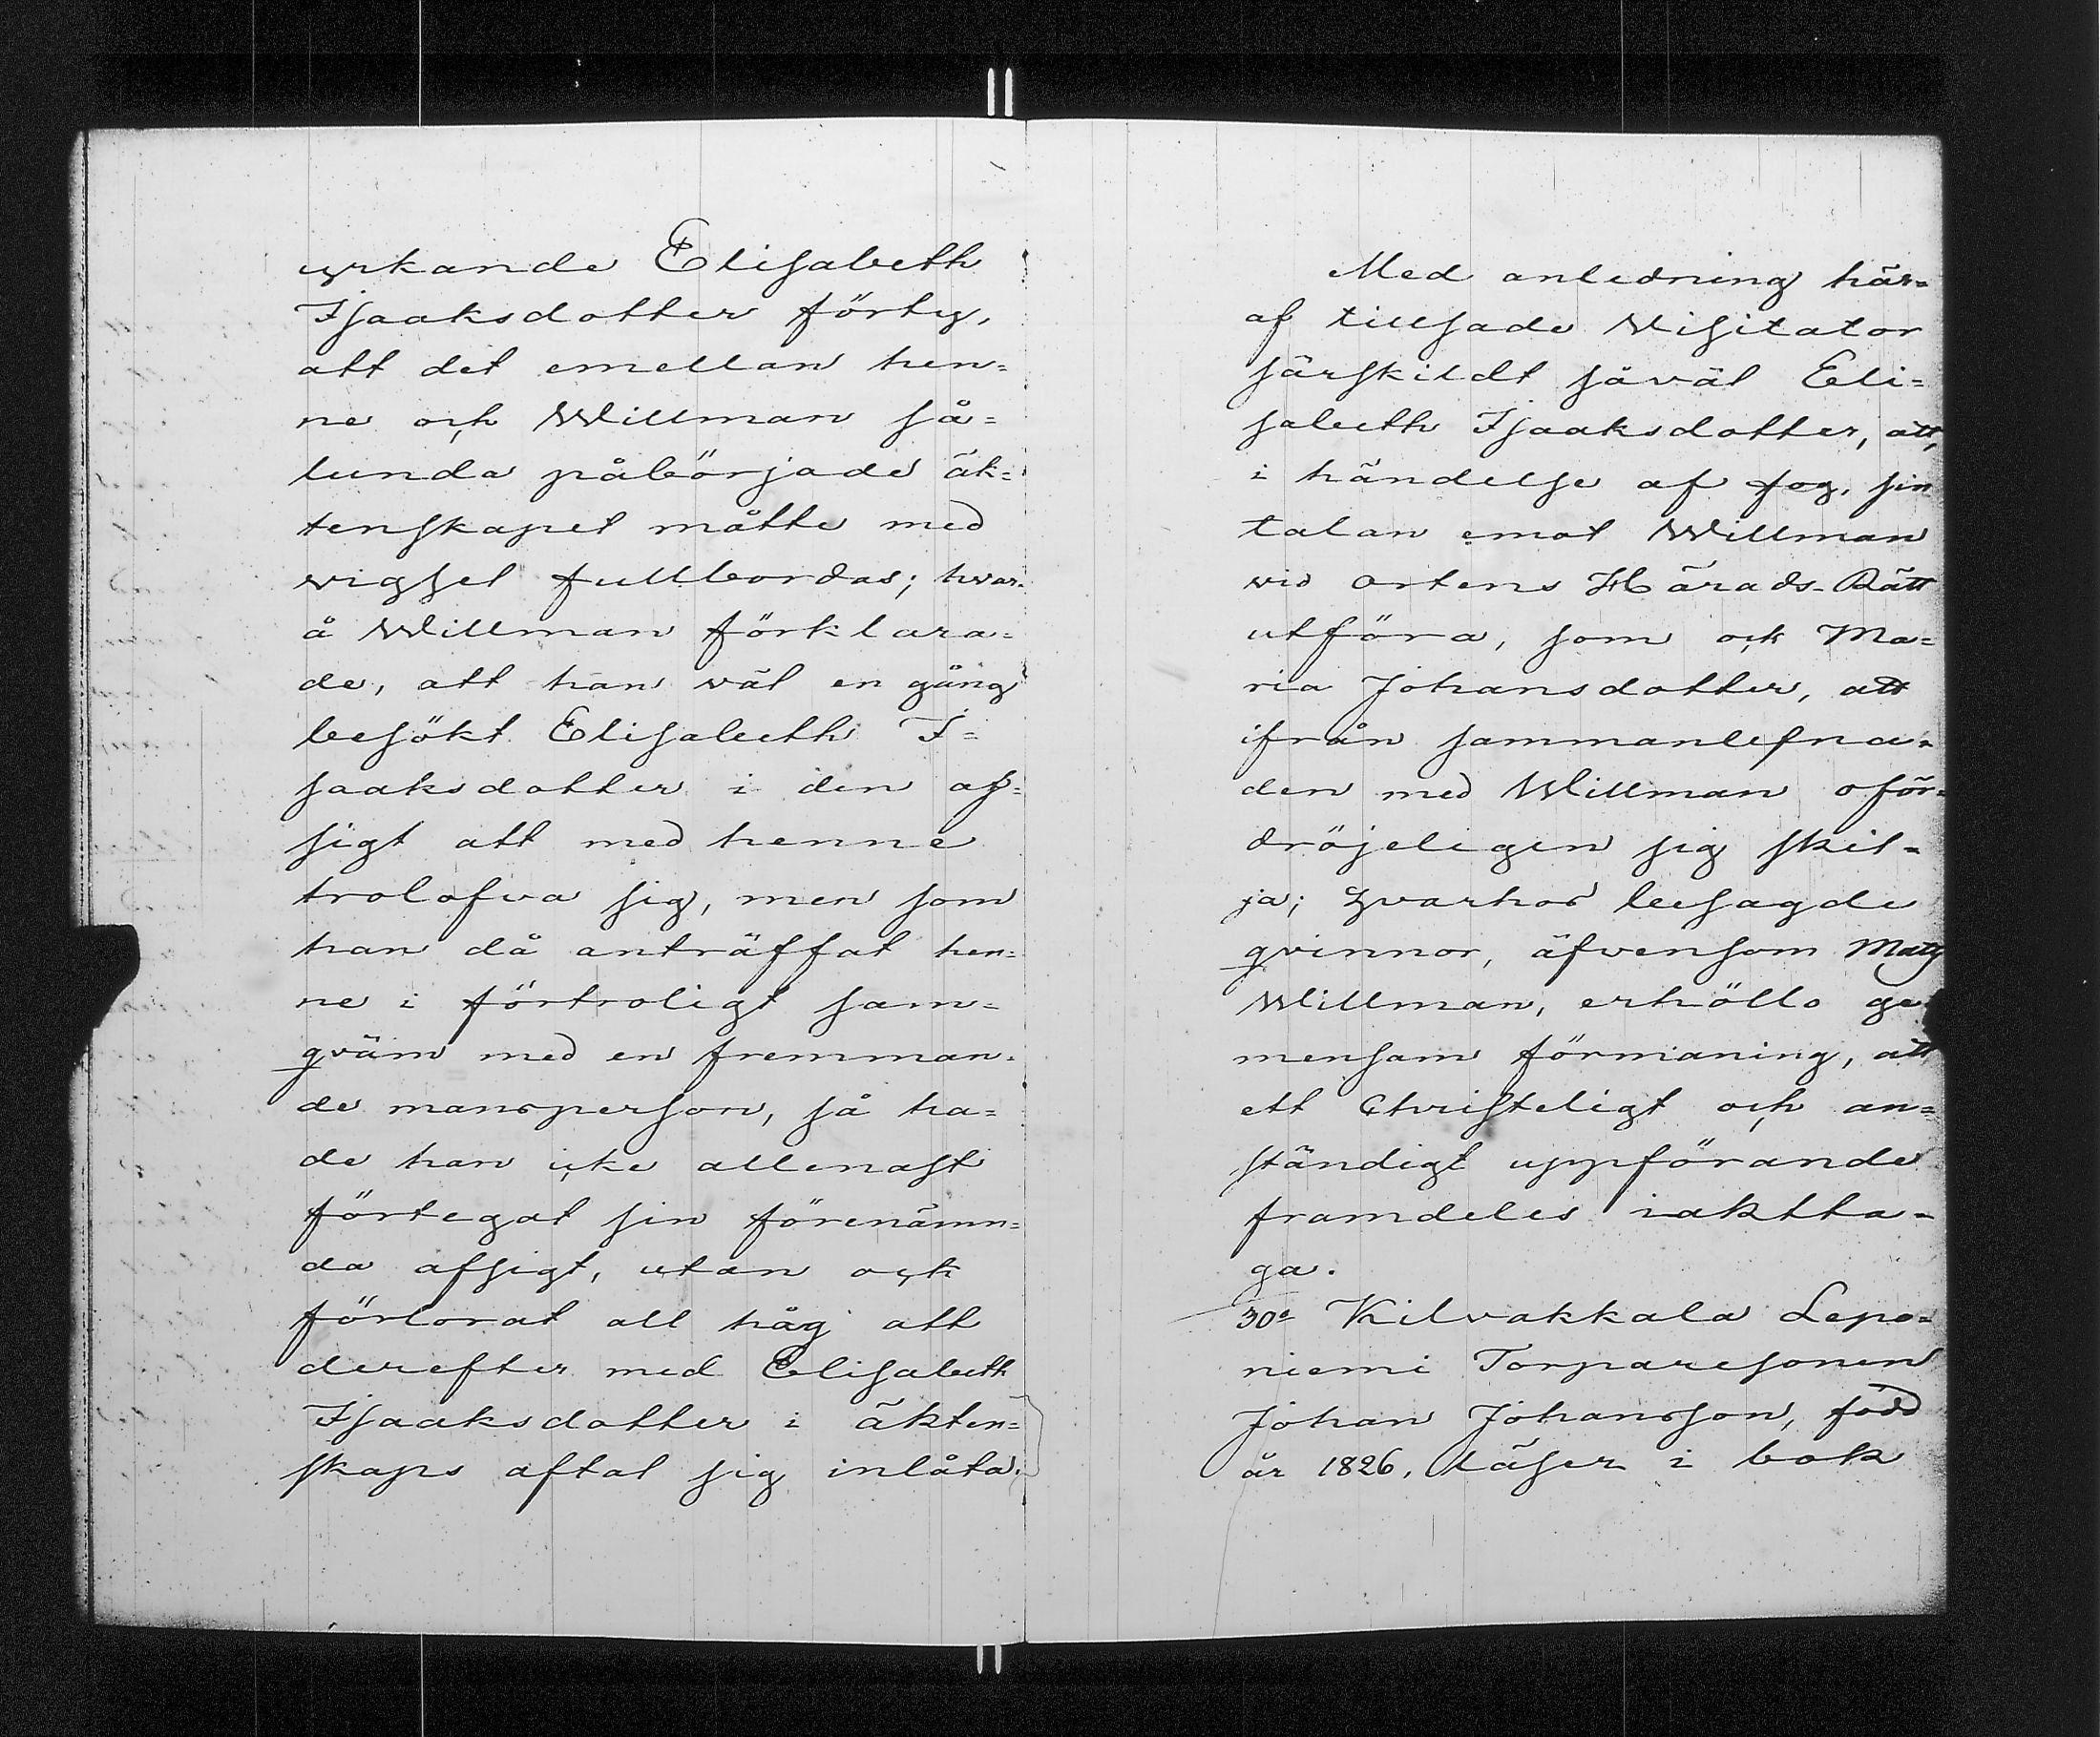 yrkande Elisabeth
Isaaksdotter förty,
att det emellan hen=
ne och Willman så=
lunda påbörjade äk=
tenskapet måtte med
vigsel fullbordas; hvar=
å Willman förklara=
de, att han väl en gång
besökt Elisabeth I=
saaksdotter i den af=
sigt att med henne
trolofva sig, men som
han då anträffat hen=
ne i förtroligt sam=
qväm med en fremman=
de mansperson, så ha=
de han icke allenast
förtegat sin förenämn=
da afsigt, utan ock
förlorat all håg att
derefter med Elisabeth
Isaaksdotter i äkten=
skaps aftal sig inlåta.
Med anledning här=
af tillsade Visitator
särskildt såväl Eli=
sabeth Isaaksdotter, att,
i händelse af fog, sin
talan emot Willman
vid ortens Härads-Rätt
utföra, som ock Ma=
ria Johansdotter, att
ifrån sammanlefna=
den med Willman oför=
dröjeligen sig skil=
ja; hvarhos besagde
qvinnor, äfvensom Matts
Willman, erhöllo ge=
mensam förmaning, att
ett Christeligt och an=
ständigt uppförande
framdeles iaktta=
ga.
30o Kilvakkala Lepo=
niemi Torparesonen
Johan Johansson, född
år 1826, läser i bok